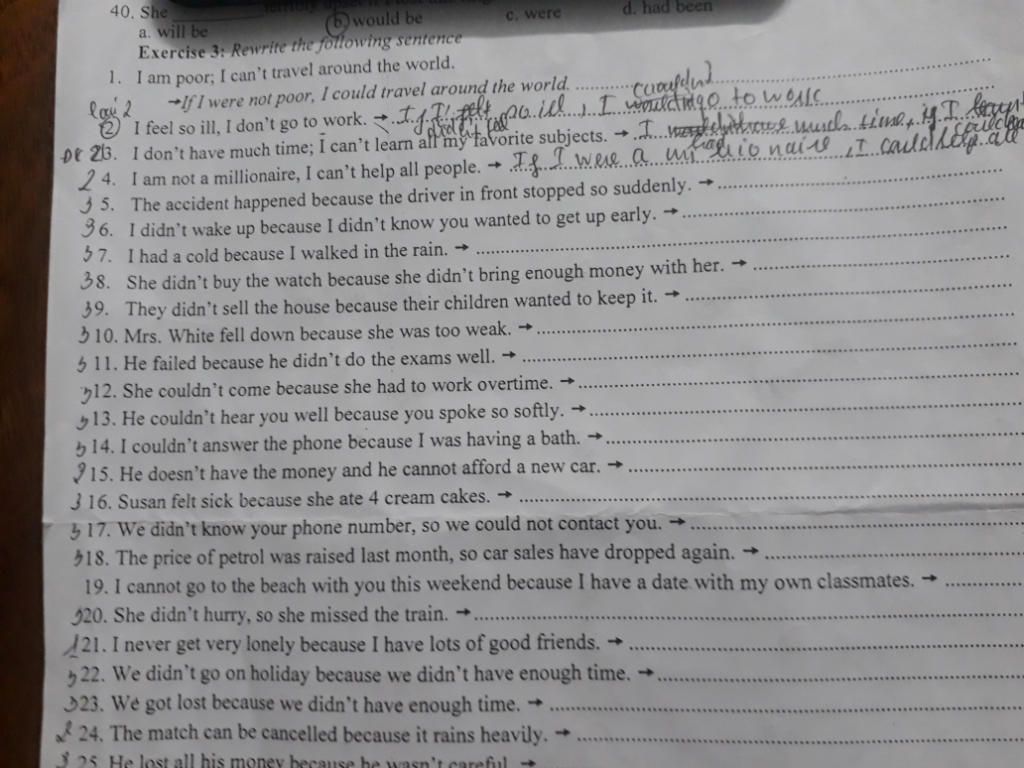 40. She
a. will be b would be c. were d. had been
Exercise 3: Rewrite the following sentence
1. I am poor; I can't travel around the world.
→If I were not poor, I could travel around the world.
loại 2
2 I feel so ill, I don't go to work. → so ill, I go to work
3. I don't have much time; I can't learn all my favorite subjects. → I much time, if I
2 4. I am not a millionaire, I can't help all people. → If I were a millionaire, I could help all
3 5. The accident happened because the driver in front stopped so suddenly. →
3 6. I didn't wake up because I didn't know you wanted to get up early. →
3 7. I had a cold because I walked in the rain. →
3 8. She didn't buy the watch because she didn't bring enough money with her. →
3 9. They didn't sell the house because their children wanted to keep it. →
3 10. Mrs. White fell down because she was too weak. →
3 11. He failed because he didn't do the exams well. →
3 12. She couldn't come because she had to work overtime. →
3 13. He couldn't hear you well because you spoke so softly. →
3 14. I couldn't answer the phone because I was having a bath. →
2 15. He doesn't have the money and he cannot afford a new car. →
3 16. Susan felt sick because she ate 4 cream cakes. →
3 17. We didn't know your phone number, so we could not contact you. →
3 18. The price of petrol was raised last month, so car sales have dropped again. →
19. I cannot go to the beach with you this weekend because I have a date with my own classmates. →
3 20. She didn't hurry, so she missed the train. →
21. I never get very lonely because I have lots of good friends. →
3 22. We didn't go on holiday because we didn't have enough time. →
3 23. We got lost because we didn't have enough time. →
2 24. The match can be cancelled because it rains heavily. →
3 25. He lost all his money because he wasn't careful. →